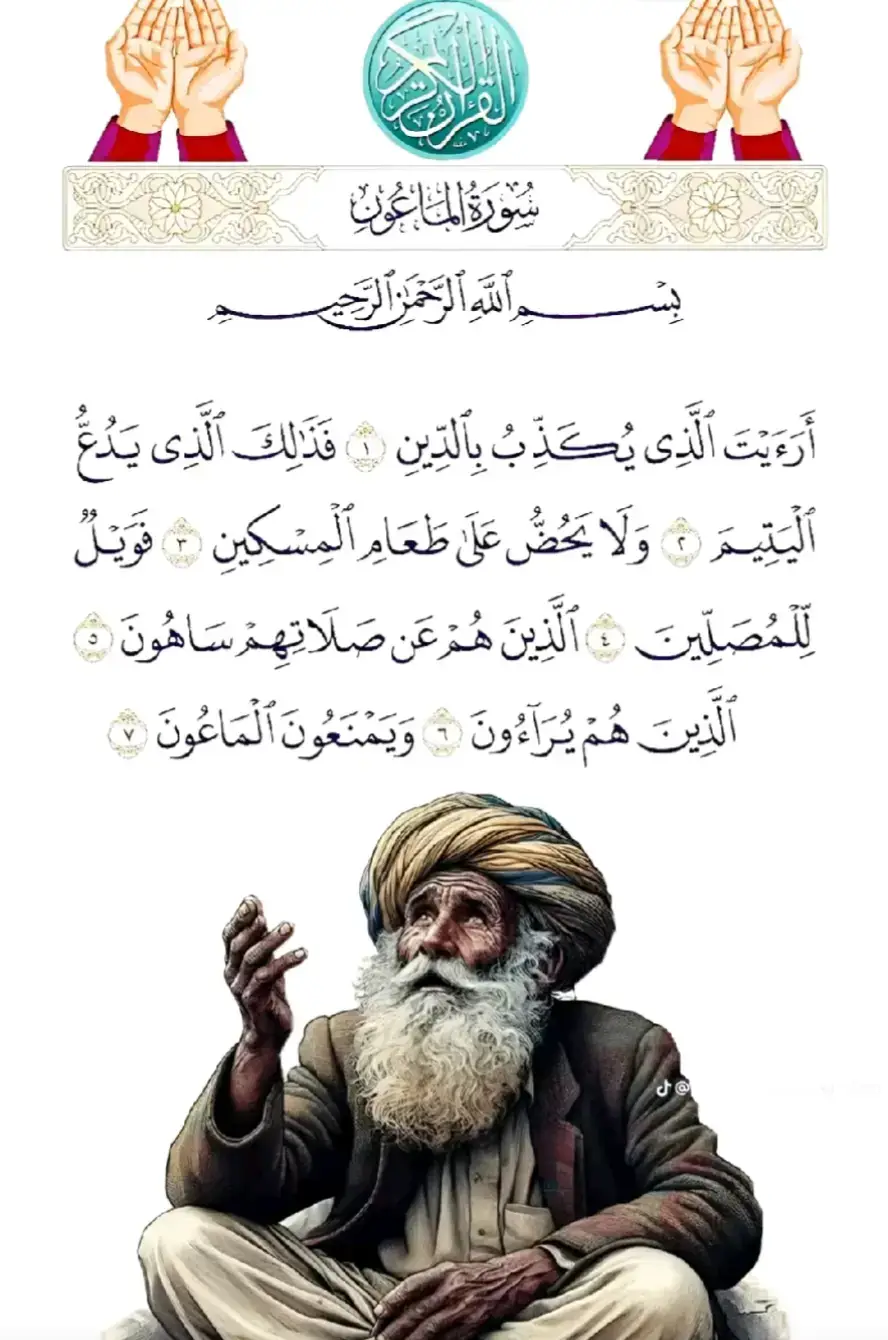 القرآن الكريم
سُورَةُ المَاعُونِ
بِسْمِ ٱللَّهِ ٱلرَّحْمَٰنِ ٱلرَّحِيمِ
أَرَءَيْتَ ٱلَّذِى يُكَذِّبُ بِٱلدِّينِ ١ فَذَٰلِكَ ٱلَّذِى يَدُعُّ
ٱلْيَتِيمَ ٢ وَلَا يَحُضُّ عَلَىٰ طَعَامِ ٱلْمِسْكِينِ ٣ فَوَيْلٌ
لِّلْمُصَلِّينَ ٤ ٱلَّذِينَ هُمْ عَن صَلَاتِهِمْ سَاهُونَ ٥
ٱلَّذِينَ هُمْ يُرَآءُونَ ٦ وَيَمْنَعُونَ ٱلْمَاعُونَ ٧
@